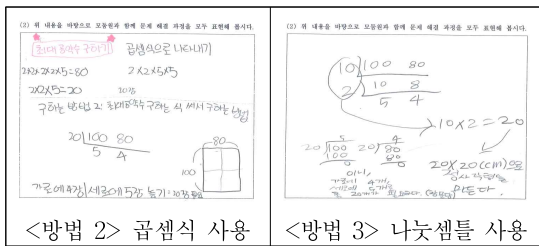 (2) 위 내용을 바탕으로 모둠원과 함께 문제 해결 과정을 모두 표현해 봅시다.
최대공약수 구하기 곱셈식으로 나타내기
2×2×2×2×5=80 2×2×5×5
2×2×5=20
구하는 방법 2: 최대공약수 구하는 식 써서 구하는 방법
20 100 80
5 4
80
100
가로에 4장 세로에 5장 놓기
<방법 2> 곱셈식 사용
(2) 위 내용을 바탕으로 모둠원과 함께 문제 해결 과정을 모두 표현해 봅시다.
10 100 80
2 10 8
5 4
10×2=20
5 4
20 100 20 80
100 80
0 0
20×20(cm)으로
정사각형을
만든다.
가로에 4개,
세로에 5개로
<방법 3> 나눗셈틀 사용